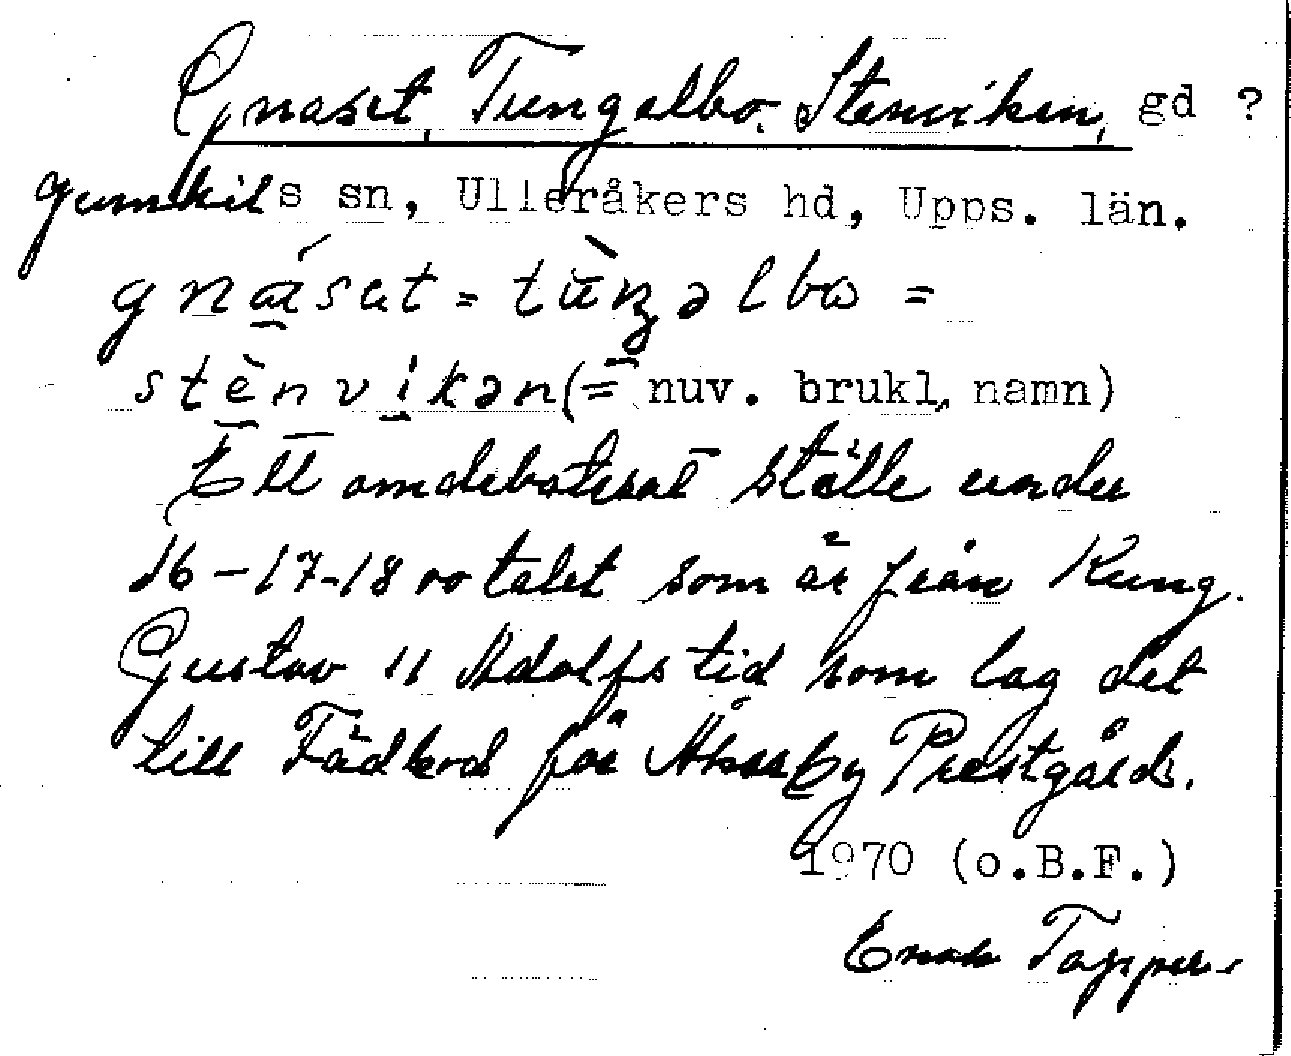 Gnaset, Tungelbo. Stenviken, gd ?
Gumkils sn, Ulleråkers hd, Upps. län.
gnásat = tùŋəlbo =
stènvikən (= nuv. brukl. namn)
Ett omdebaterat ställe under
16-17-1800 talet som är från Kung.
Gustav II Adolfs tid som lag det
till för Prestgård.
1970 (o.B.F.)
Tapper